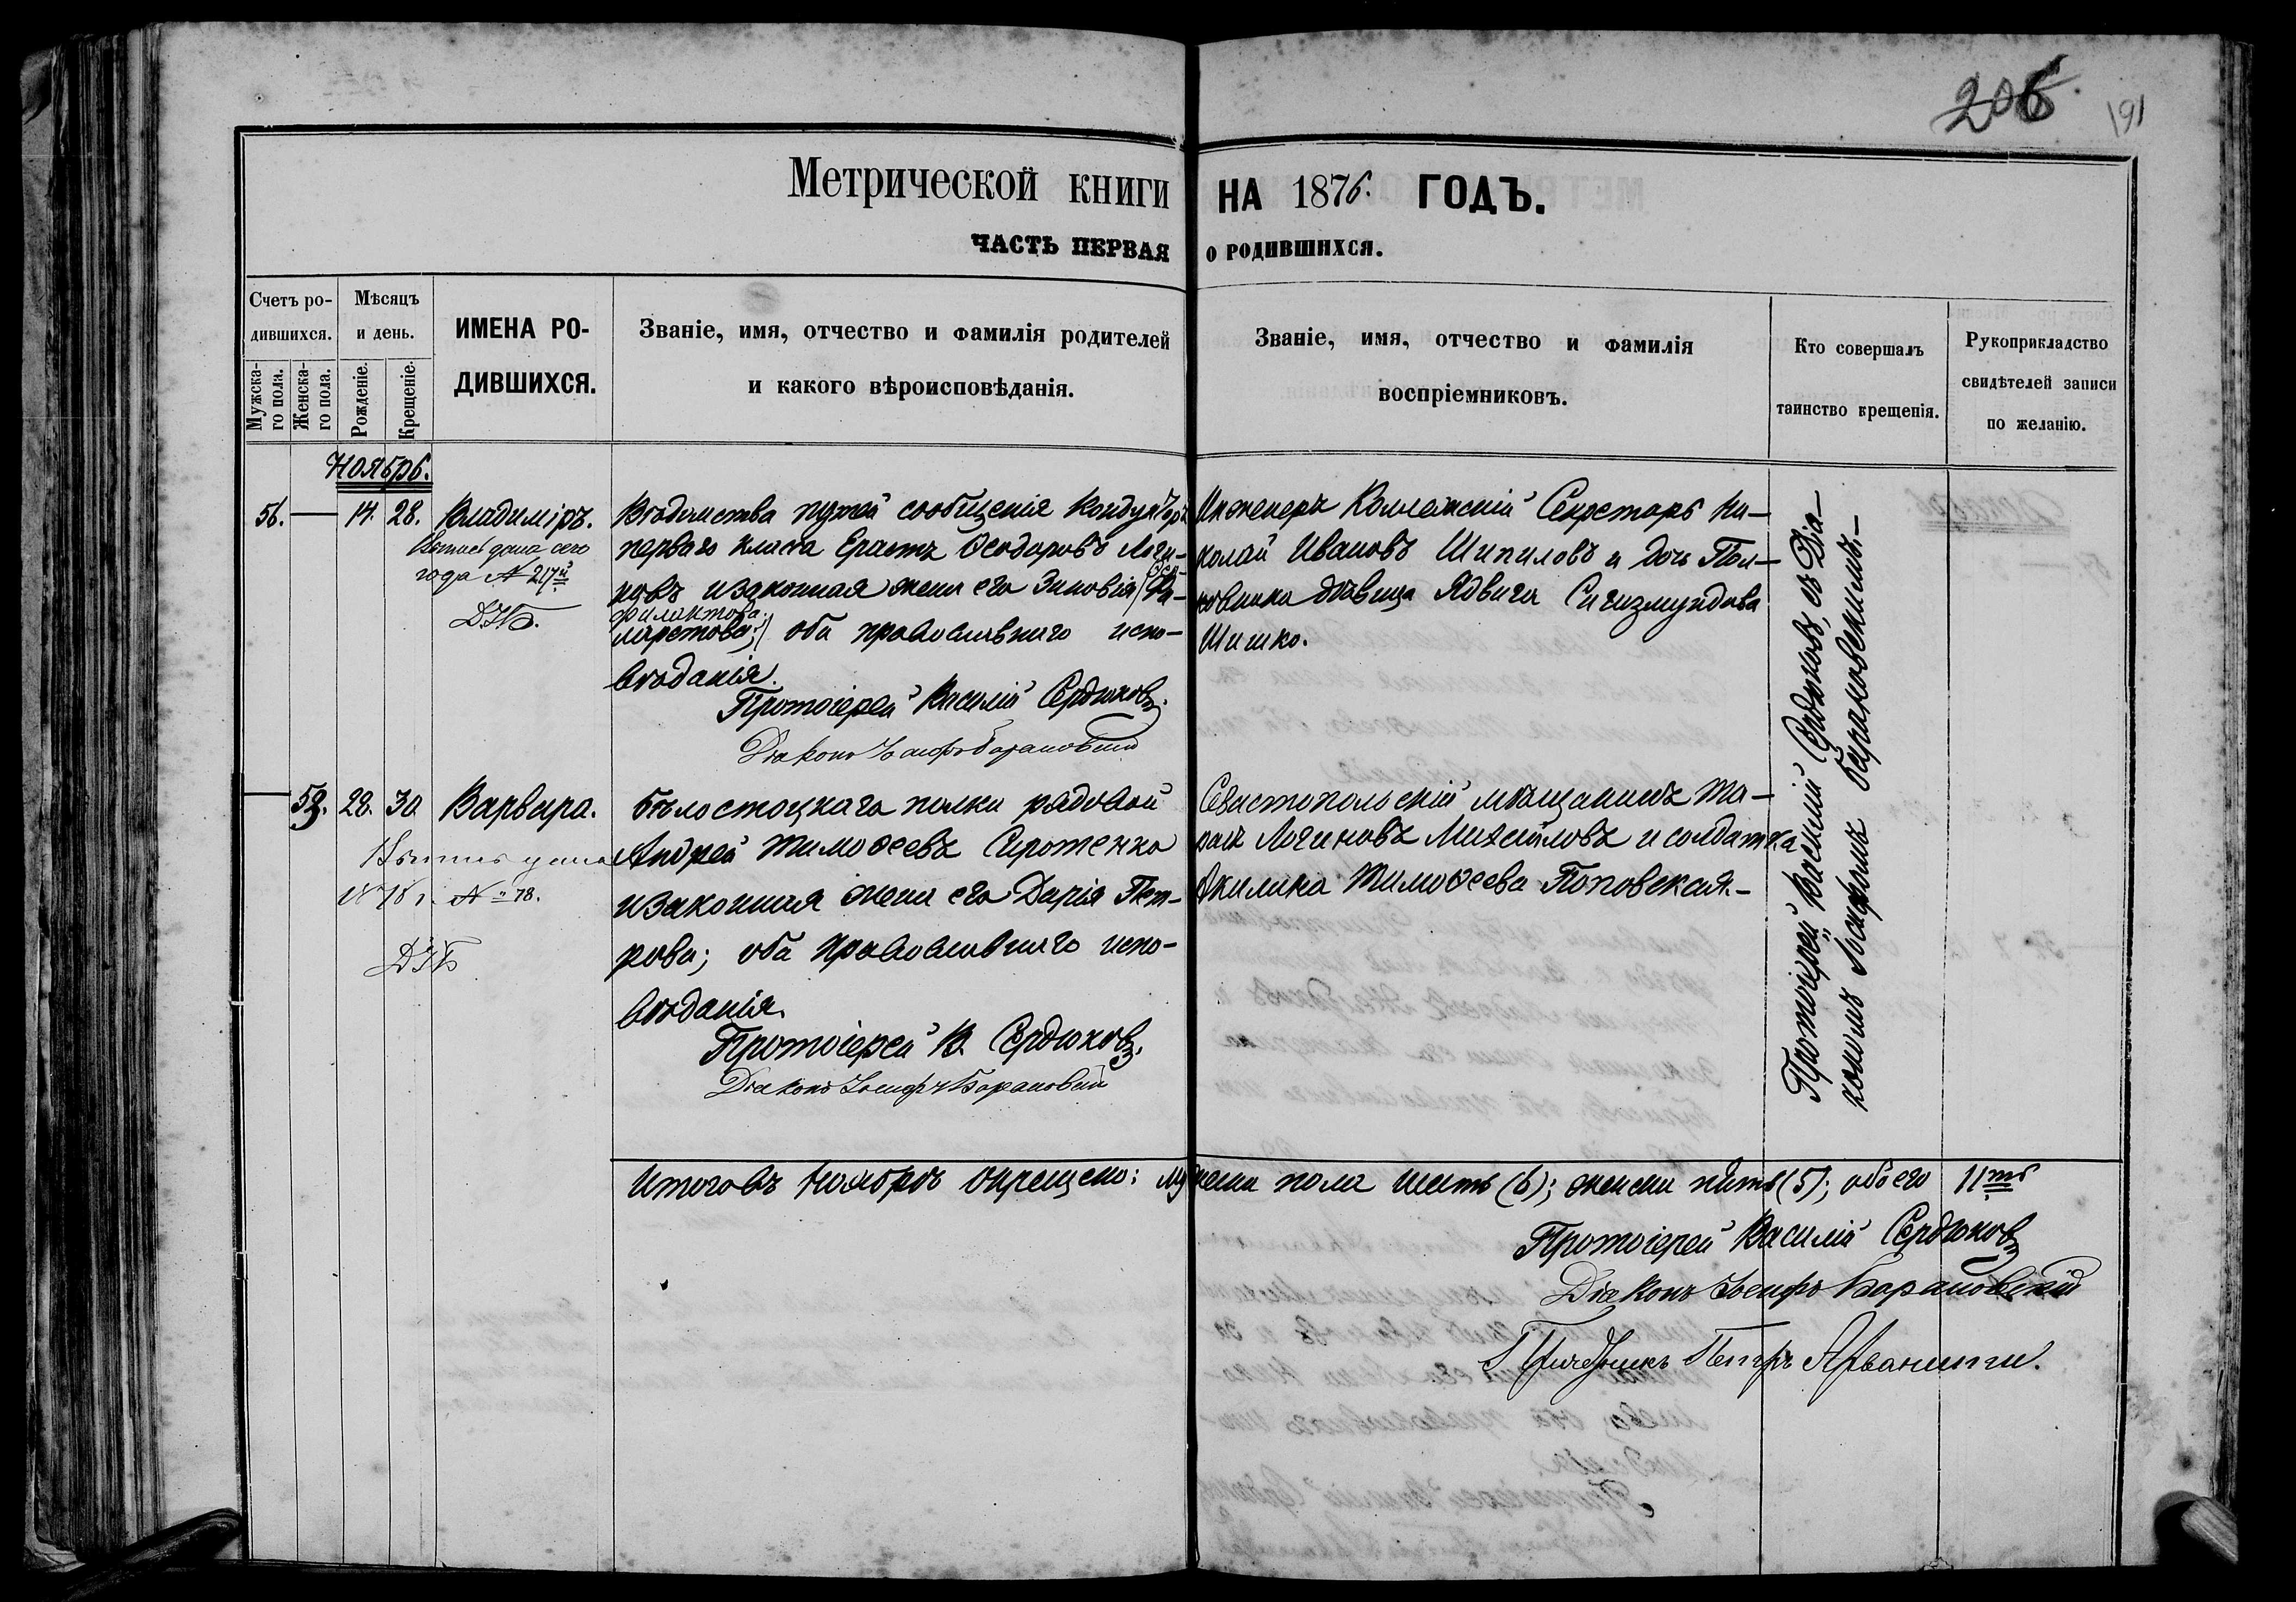 206. 191
Метрической книги на 1876. годъ.
часть первая о родившихся.
Счетъ родившихся.
Мужскаго пола.
Женскаго пола.
Мѣсяцъ и день.
Рожденіе.
Крещеніе.
ИМЕНА РО-
ДИВШИХСЯ.
Званіе, имя, отчество и фамилія родителей
и какого вѣроисповѣданія.
Званіе, имя, отчество и фамилія
воспріемниковъ.
Кто совершалъ
таинство крещенія.
Рукоприкладство
свидѣтелей записи
по желанію.
Ноябрь.
56. — 14. 28. Владиміръ.
Выпись дана сего
года № 217й
Д.І.Б.
Вѣдомства путей сообщенія Кондукторъ
перваго класса Ерастъ Ѳеодоровъ Логи-
новъ и законная жена его Зиновія (Ѳео-
филактова;
Ка-
листова;) оба православнаго испо-
вѣданія.
Протоіерей Василій Сердюковъ.
Діаконъ Іосифъ Барановскій
Инженеръ Коллежскій Секретарь Ни-
колай Ивановъ Шипиловъ и дочь Пол-
ковника дѣвица Ядвига Сигизмундова
Шишко.
Протоіерей Василій Сердюковъ, съ Діа-
кономъ Іосифомъ Барановскимъ.—
— 53. 28. 30 Варвара.
Выпись дана
1878 г. № 78.
Д.І.Б
Бѣлостоцкаго полка рядовой
Андрей Тимоѳеевъ Сиротенко
и законная жена его Дарія Пет-
рова; оба православнаго испо-
вѣданія.
Протоіерей В. Сердюковъ.
Діаконъ Іосифъ Барановскій
Севастопольскій мѣщанинъ Та-
расъ Логиновъ Михайловъ и солдатка
Акилина Тимоѳеева Поповская.—
Итого въ Ноябрѣ окрещено: мужеска пола шесть (6); женска пять (5); обоего 11ть
Протоіерей Василій Сердюковъ
Діаконъ Іосифъ Барановскій
Причетникъ Петръ Арванити.